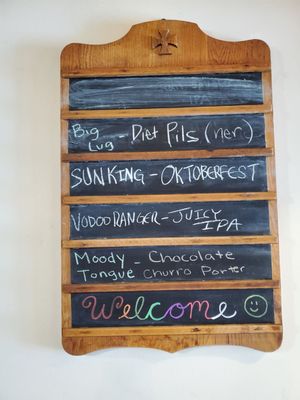 Big Lug - Diet Pils (ner.)
SUN KING - OKTOBERFEST
VODOO RANGER - JUICY IPA
Moody - Chocolate
Tongue Churro Porter
Welcome